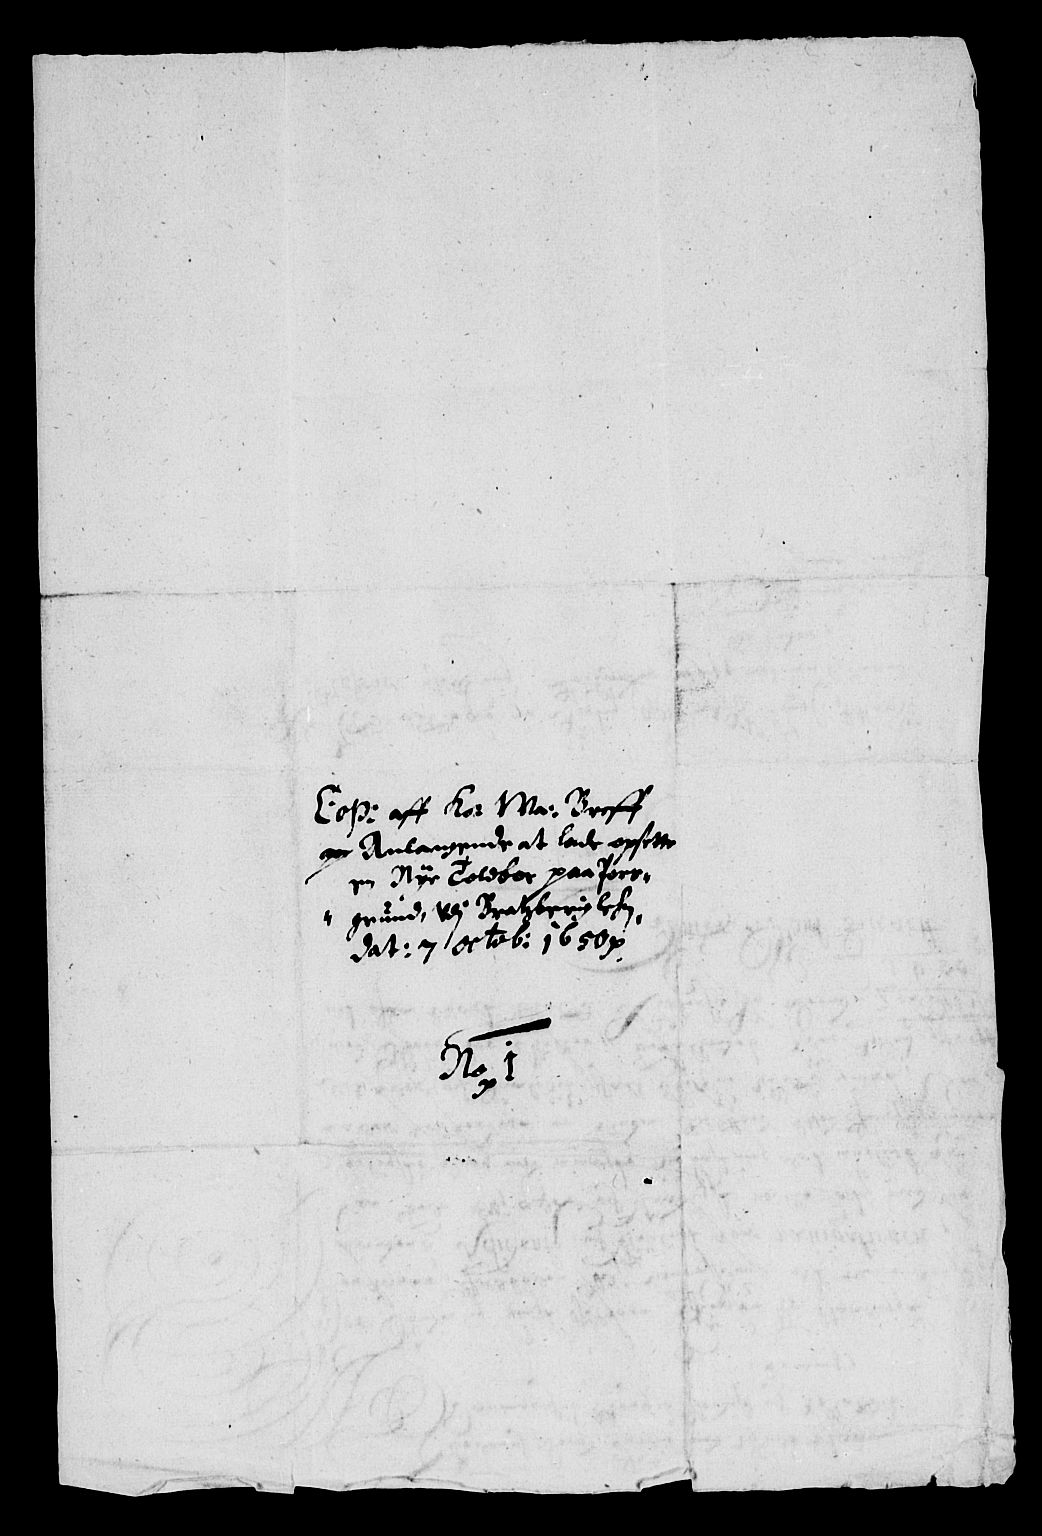 Cop: aff Kor Ma: Breff
Anlangende at lade opsette
en Nÿe Toldboe paa Pors,
grund, vdj Bratzberig lehn,
dat: 7 octob: 1650
No 1